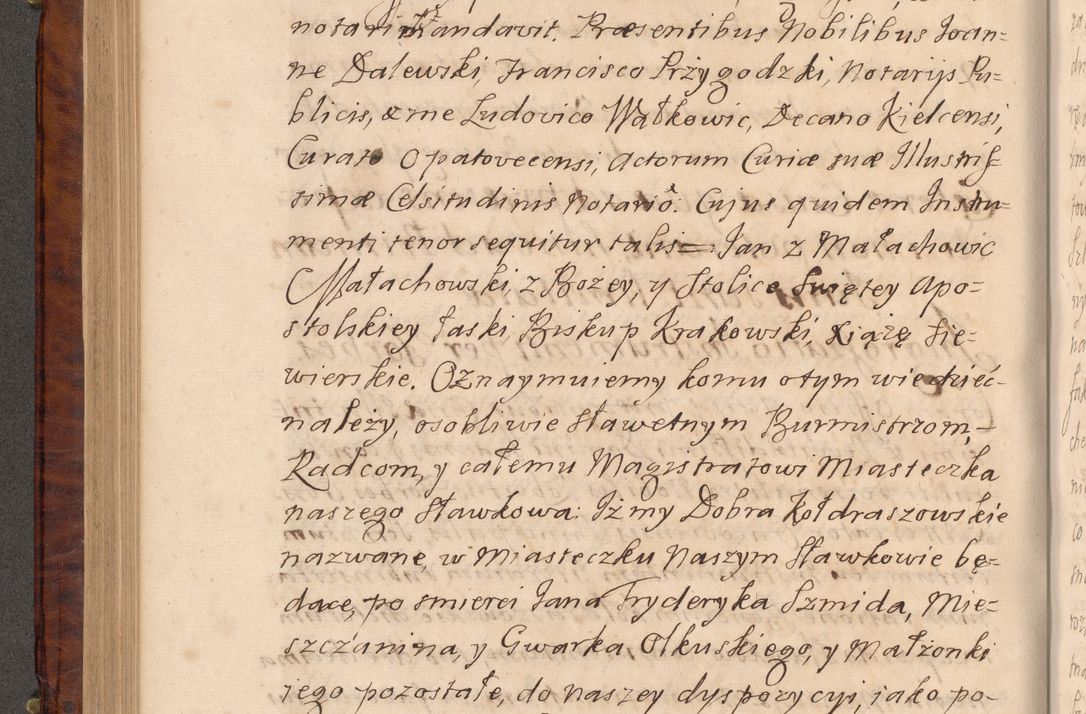 notari mandavit. Præsentibus Nobilibus Ioan=
ne Dalewski, Francisco Przygodzki, Notarijs Pu=
blicis, ac me Ludovico Wątkowic, Decano Kielcensi,
Curato Opatovecensi, Actorum Curiæ suæ Illustris=
simæ Celsitudinis Notariô. Cujus quidem Instru=
menti tenor sequitur talis = Jan z Małachowic
Małachowski, z Bożey, y Stolice Swiętey Apo=
stolskiey łaski, Biskup Krakowski, Xiążę Sie=
wierskie. Oznaymuiemy komu o tym wiedzieć
należy, osobliwie Sławetnym Burmistrzom,
Radcom, y całemu Magistratowi Miasteczka
naszego Sławkowa: Iż my Dobra Kołdraszowskie
nazwane, w Miasteczku Naszym Sławkowie bę=
dące, po smierci Jana Fryderyka Szmida, Mie=
szczanina, y Gwarka Olkuskiego, y Małżonki
iego pozostałe, do naszey dyspozycyi, iako po=